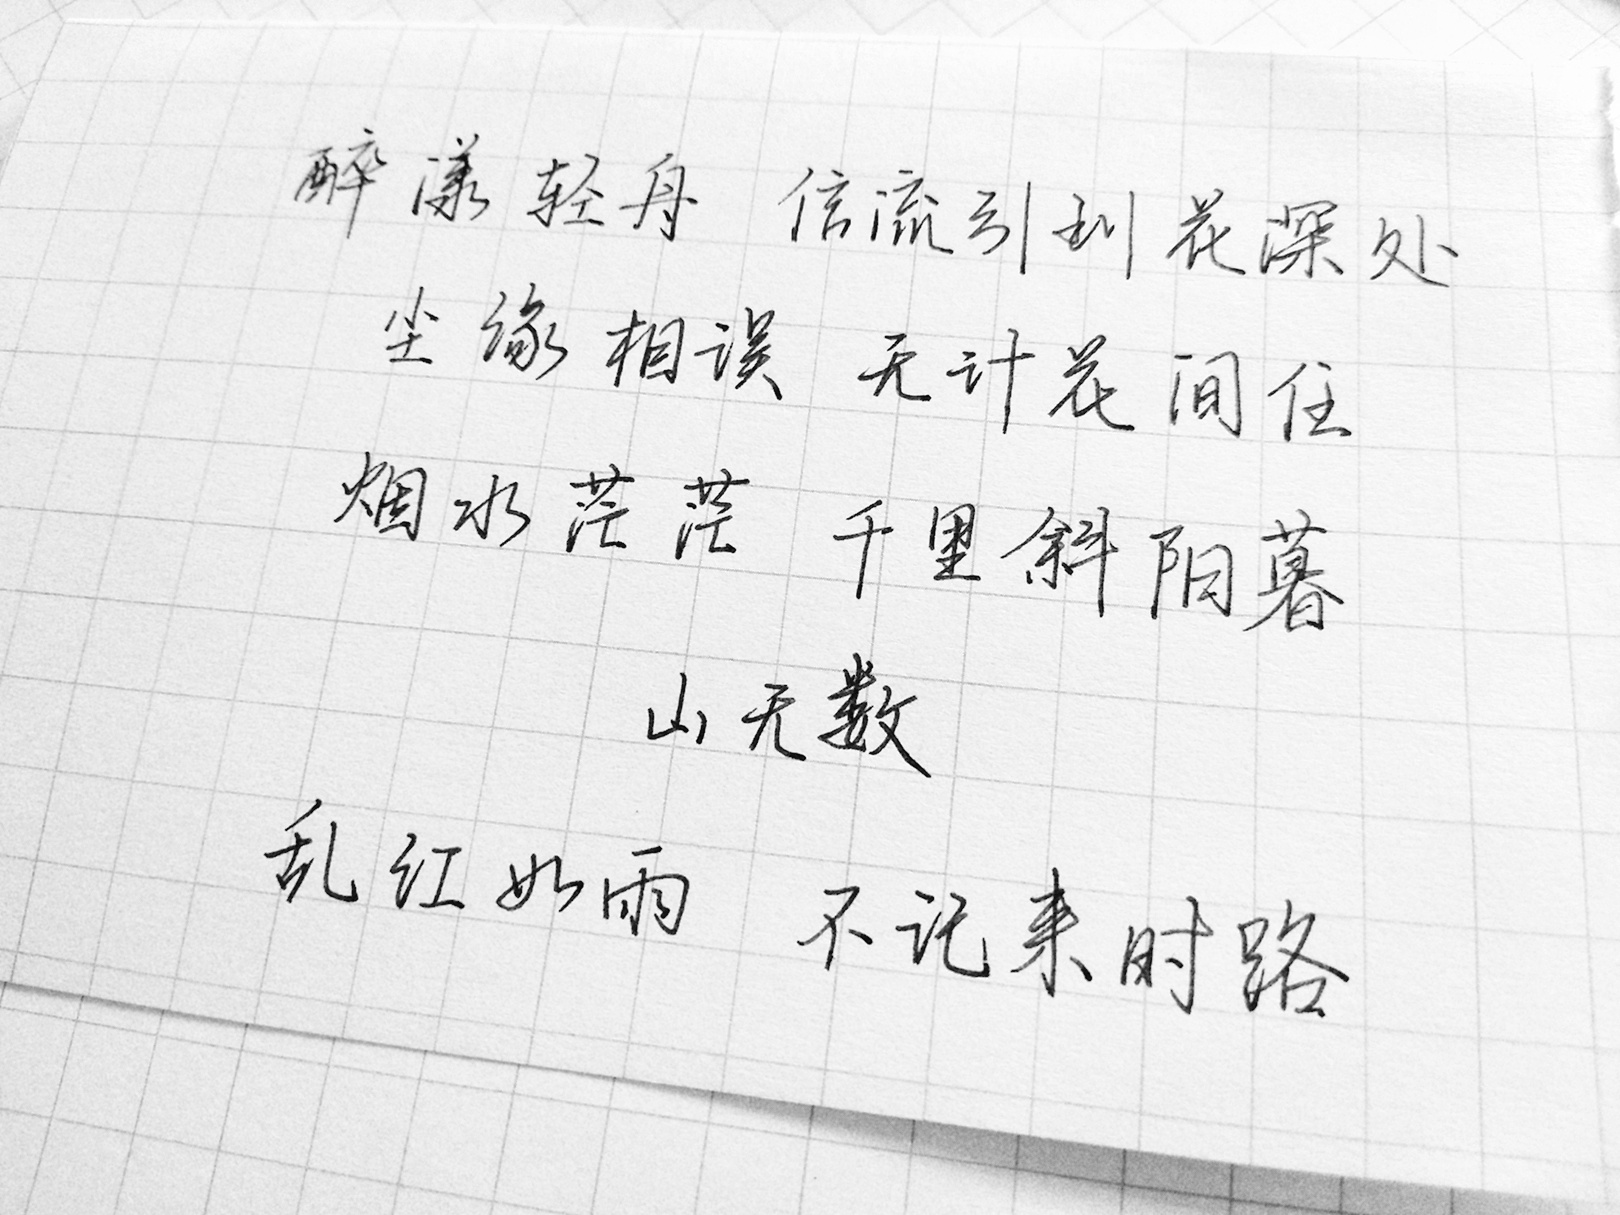 醉漾轻舟 信流引到花深处
尘缘相误 无计花间住
烟水茫茫 千里斜阳暮
山无数
乱红如雨 不记来时路